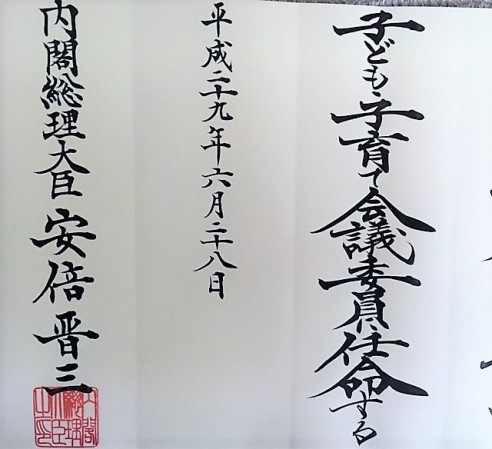 子ども・子育て会議委員に任命する
平成二十九年六月二十八日
内閣総理大臣 安倍晋三
内閣総理大臣之印